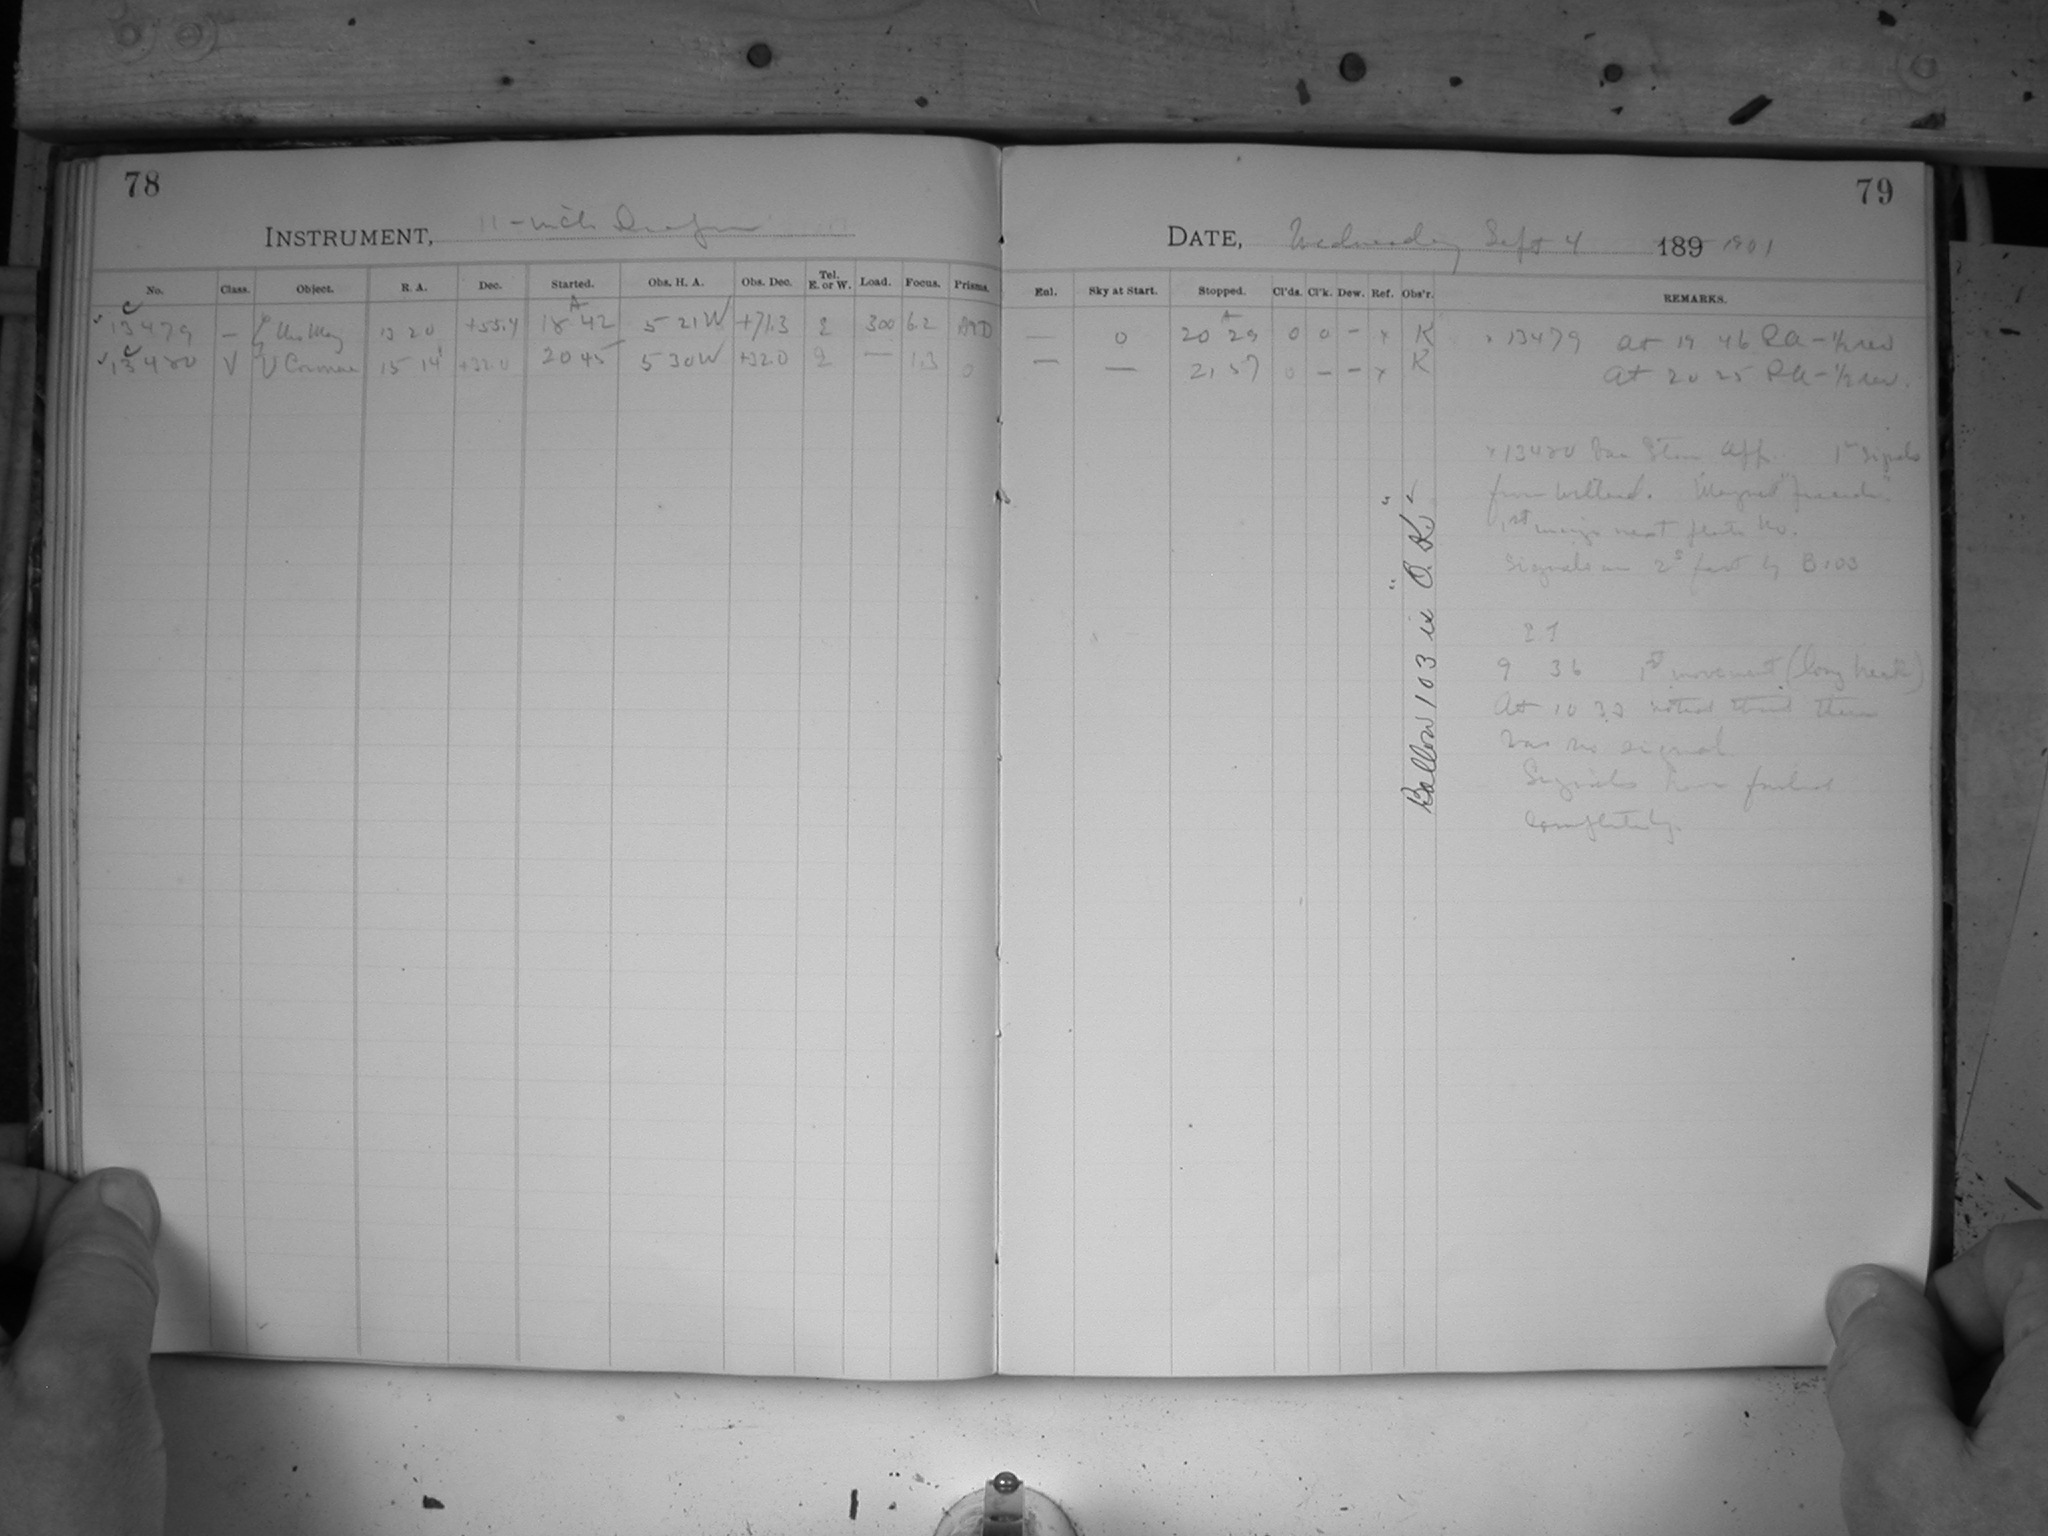 78
INSTRUMENT, 11-inch Draper
No. Class. Object. R. A. Dec. Started. Obs. H. A. Obs. Dec. Tel. E. or W. Load. Focus. Prisms.
13479 — ζ Urs Maj 13 20 +55.4 18 42 5 21W +71.3 2 300 6.2
13480 V U Coronae 15 14 +32.0 20 45 5 30W +32.0 2 — 1.3 0
79
DATE, Wednesday Sept 4 189 1901
Enl. Sky at Start. Stopped. Cl'ds. Cl'k. Dew. Ref. Obs'r. REMARKS.
— 0 20 29 0 0 — x K x 13479 at 19 46 RA - 1/2 rev
— — 21 57 0 — — x K At 20 25 RA - 1/2 rev.
x 13480 Var Star App. 1st signals
from Willard.
1st
Signals 2s fast by B103
Ballow 103 is "O. K."
9 36 1st movement (long break)
At 10 32 noticed that there
was no signal
Signals have failed
completely.